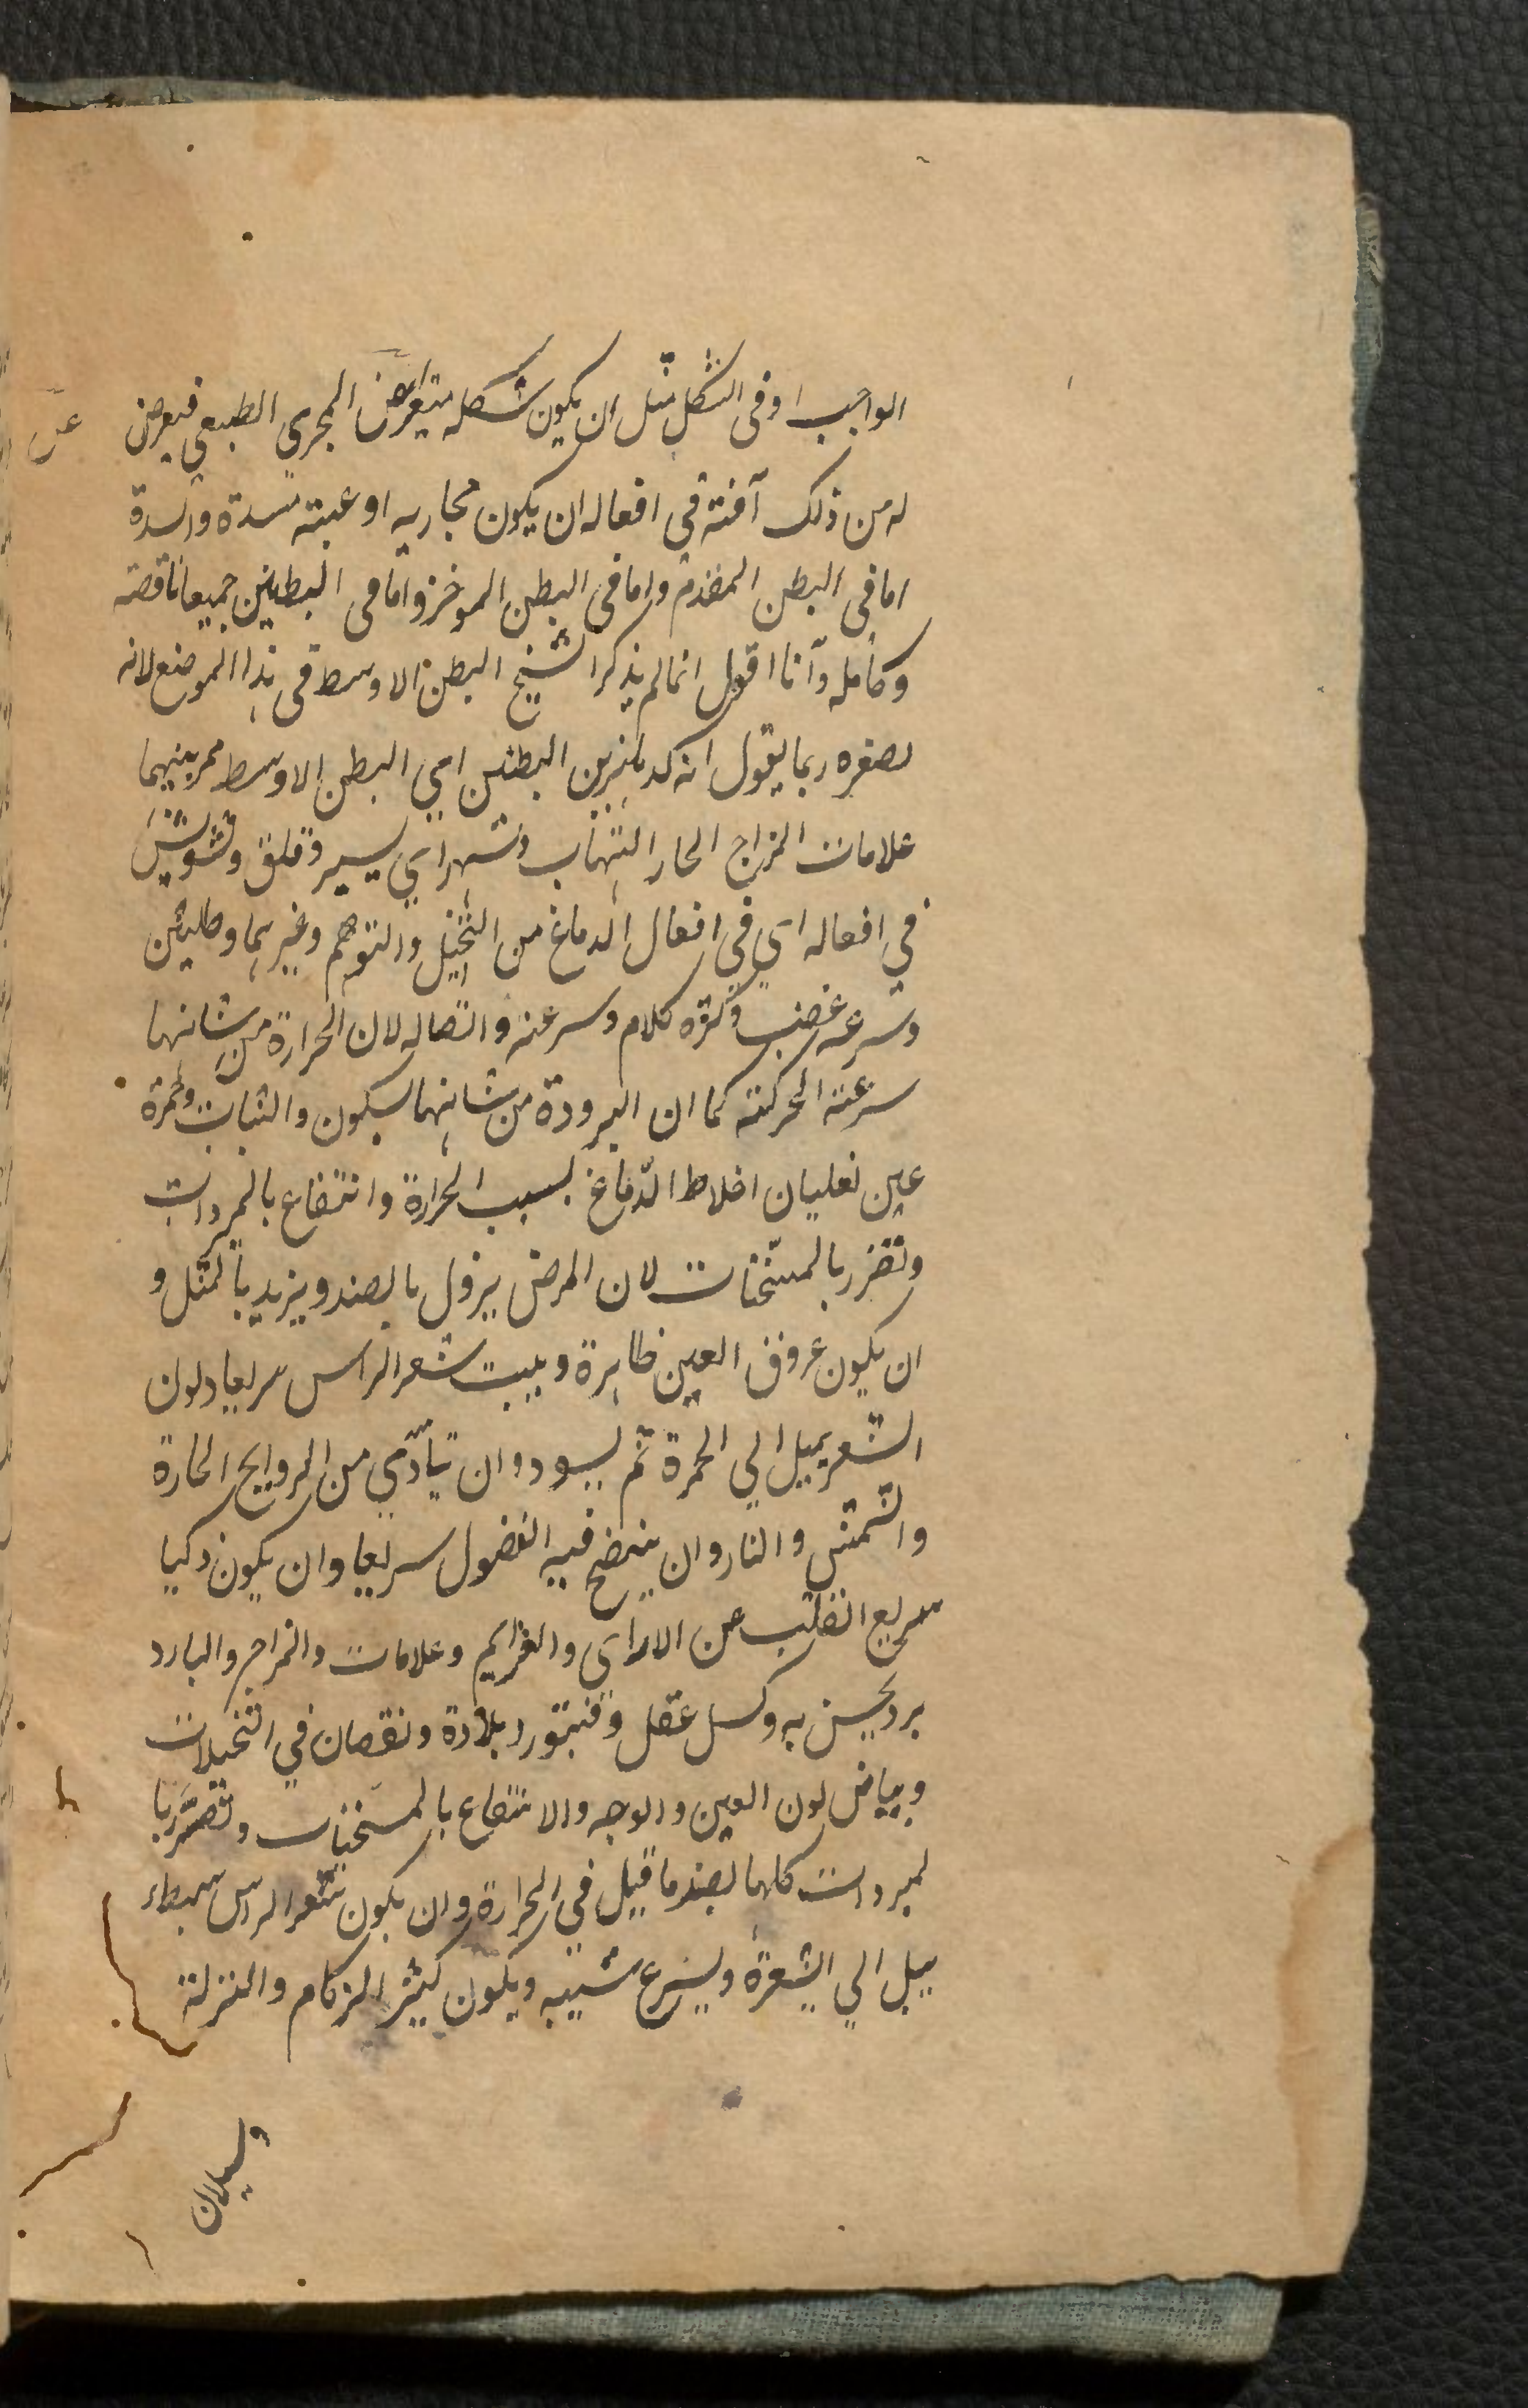 الواجب او فى الشكل مثل ان يكون شكله متيغرا عن المجرى الطبعي فيعرض
عن
له من ذلك آفته فى افعاله ان يكون مجاريه او عيته سدة والسدة
اما فى البطن المقدم واما فى البطن الموخر واما فى البطنين جميعا ناقصة
وكامله وانا اقول انما لم يذكر الشيخ البطن الاوسط فى هذا الموضع لانه
لصغره ربما يقول انه كدهليز بين البطنين اى البطن الاوسط ممر بينهما
علامات المزاج الحار التهاب وسهر اي يسير وقلق وتشويش
في افعاله اي في افعال الدماغ من التخيل والتوهم وغيرهما وطيش
وسرعه غضب وكثره كلام وسرعته واتصاله لان الحرارة من شانها
سرعته الحركته كما ان البرودة من شانها سكون والثبات وحمرة
عين لغليان اخلاط الدماغ بسبب الحرارة وانتفاع بالمبردات
وتضرر بالمسخنات لان المرض يزول بالضد ويزيد بالمثل و
ان يكون عروق العين ظاهرة وينبت شعر الراس سريعا ولون
الشعر يميل الي الحمرة ثم يسود وان يتأذي من الروايح الحارة
والشمش والنار وان ينضج فيه الفضول سريعا وان يكون ذكيا
سريع التقلب عن الاراى والعزايم وعلامات والمزاج والبارد
برد يحس به وكسل عقل وفتور وبلادة ونقصان في التخيلات
وبياض لون العين والوجه والانتفاع بالمسخنات وتضرر با
لمبردات كلها لضد ما قيل في الحرارة وان يكون شعر الراس سبطاء
يميل الي الشقرة ويسرع شيبه ويكون كثير الزكام والنزلة
وسيلان